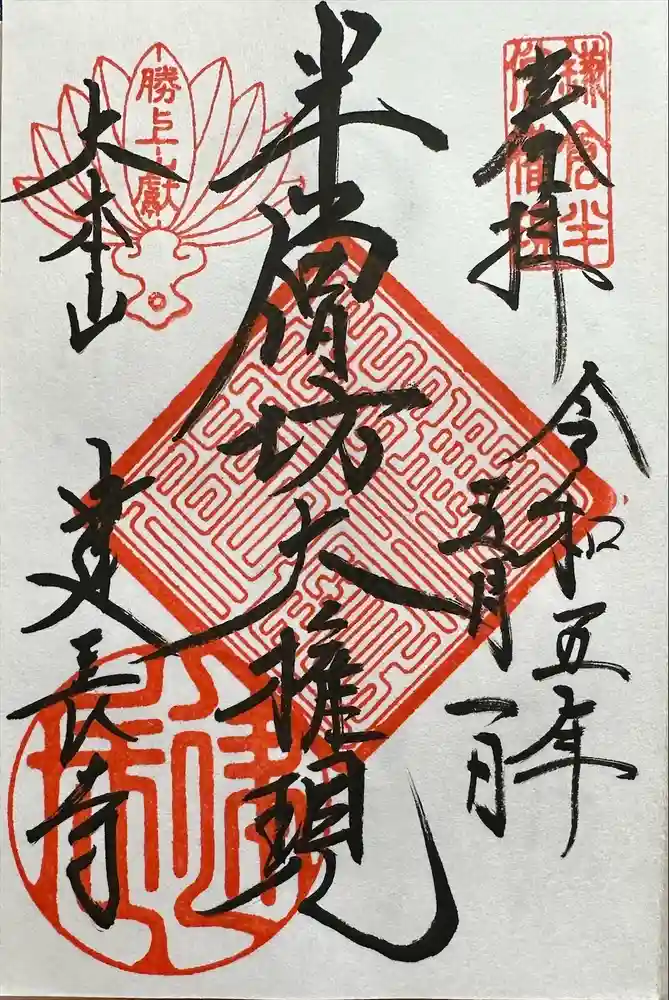 奉拝
令和五年
五月一日
半僧坊大権現
勝上嶽
大本山
建長寺
鎌倉半